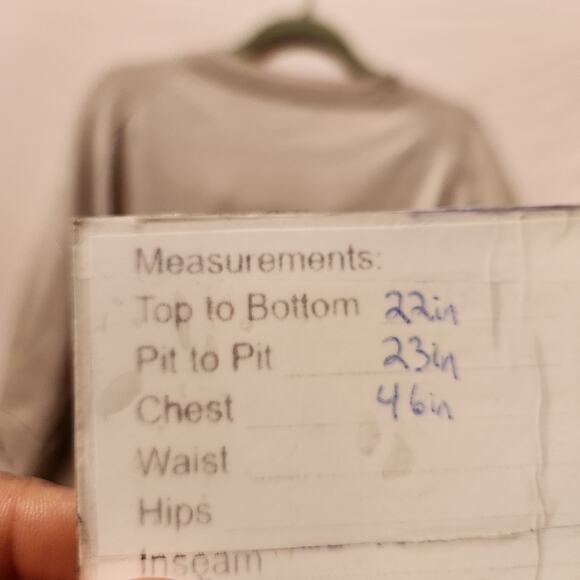 Measurements:
Top to Bottom 22in
Pit to Pit 23in
Chest 46in
Waist
Hips
Inseam